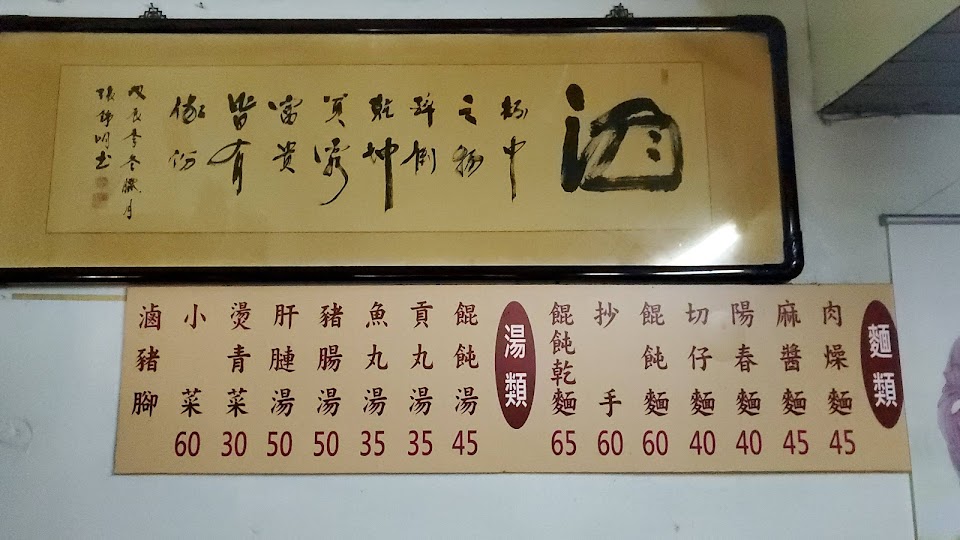 酒
杯中
之物
醉倒
乾坤
富貴
皆有
戊辰季冬臘月
麵類
肉燥麵 45
麻醬麵 45
陽春麵 40
切仔麵 40
餛飩麵 60
抄手 60
餛飩乾麵 65
湯類
餛飩湯 45
貢丸湯 35
魚丸湯 35
豬腸湯 50
肝腱湯 50
燙青菜 30
小菜 60
滷豬腳